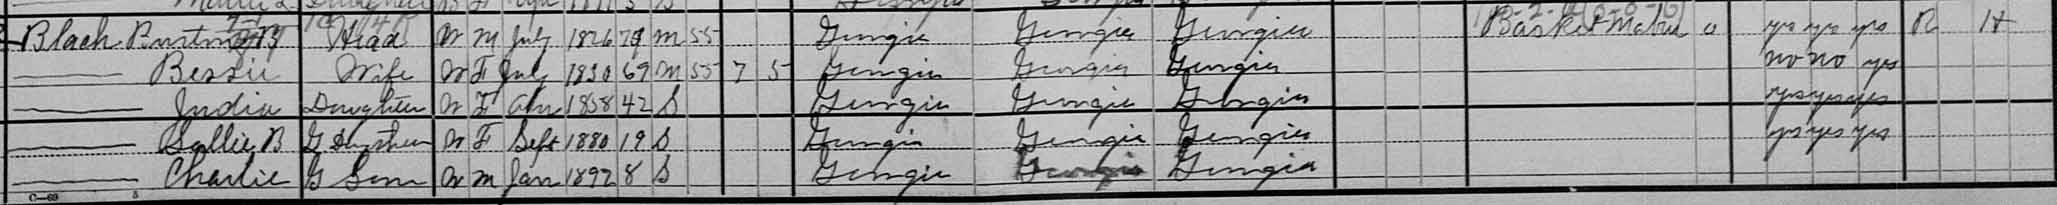 Black Burtney B Head W M July 1826 73 M 55 Georgia Georgia Georgia Basket Maker 0 yes yes yes R H
Bessie Wife W F July 1830 69 M 55 7 5 Georgia Georgia Georgia no no yes
India Daughter W F Apr 1858 42 S Georgia Georgia Georgia yes yes yes
Sallie B G Daughter W F Sept 1880 19 S Georgia Georgia Georgia yes yes yes
Charlie G Son W M Jan 1892 8 S Georgia Georgia Georgia
C—69